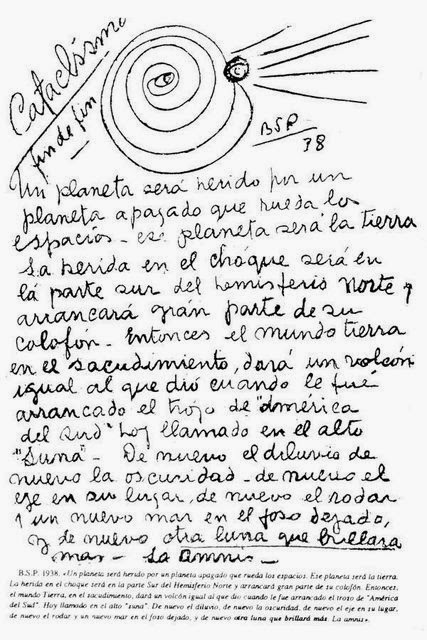 Cataclismo
fin de fin
BSP
38
Un planeta será herido por un
planeta apagado que rueda los
espacios - ese planeta será la tierra
La herida en el choque será en
lá parte sur del hemisferio Norte y
arrancará grán parte de su
colofón - Entonces el mundo tierra
en el sacudimiento, dará un volcón
igual al que dió cuando le fué
arrancado el trozo de "América
del Sud" hoy llamado en el alto
"Suna" - De nuevo el diluvio de
nuevo la oscuridad - de nuevo el
eje en su lugar, de nuevo el rodar
y un nuevo mar en el foso dejado,
y de nuevo otra luna que brillara
mas - La amnis -
B.S.P. 1938. «Un planeta será herido por un planeta apagado que rueda los espacios. Ese planeta será la tierra.
La herida en el choque será en la parte Sur del Hemisferio Norte y arrancará gran parte de su colofón. Entonces,
el mundo Tierra, en el sacudimiento, dará un volcón igual al que dio cuando le fue arrancado el trozo de "América
del Sud". Hoy llamado en el alto "suna". De nuevo el diluvio, de nuevo la oscuridad, de nuevo el eje en su lugar,
de nuevo el rodar y un nuevo mar en el foso dejado, y de nuevo otra luna que brillará más. La amnis».